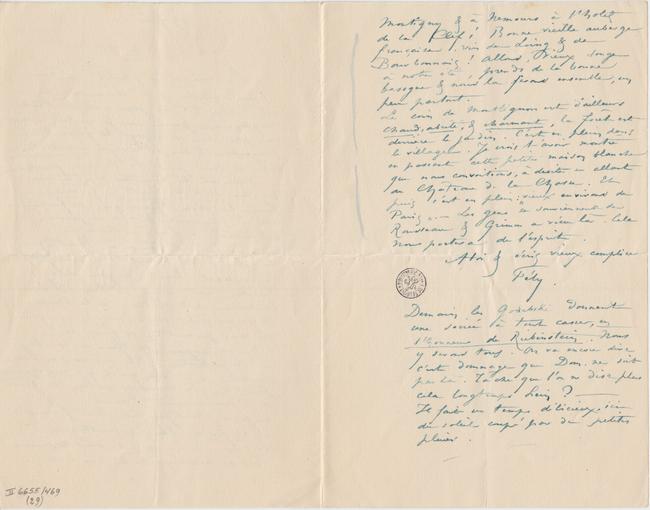 Montigny & à Nemours à l'hotel
de la Clef! Bonne vieille auberge
française vin de &  de
Bourbonnais! Allons, vieux songe
à notre été, prends de la bonne
besogne & nous la ferons ensemble, un
peu partout.
Le coin de est d'ailleurs
chaud, abrité, & charmant, la forêt est
derrière le jardin. C'est en plein dans
le village. Je crois t'avoir montré
en passant cette petite maison blanche
que nous convoitions, à droite en allant
au Château de la Chasse. Et
puis c'est en plein vieux environs de
Paris. — Les gens se souviennent de
Rousseau & Grimm a vécu là. Cela
nous portera de l'esprit.
A toi & vieux complice
Fély.
Demain les Godebski donnent
une soirée à tout casser, en
l'honneur de Rubinstein. Nous
y serons tous. On va encore dire
c'est dommage que Dom. ne soit
pas là. Tâche que l'on ne dise plus
cela longtemps hein? —
Il fait un temps délicieux ici
du soleil coupé par de petites
pluies.
II 6655/469
(29)